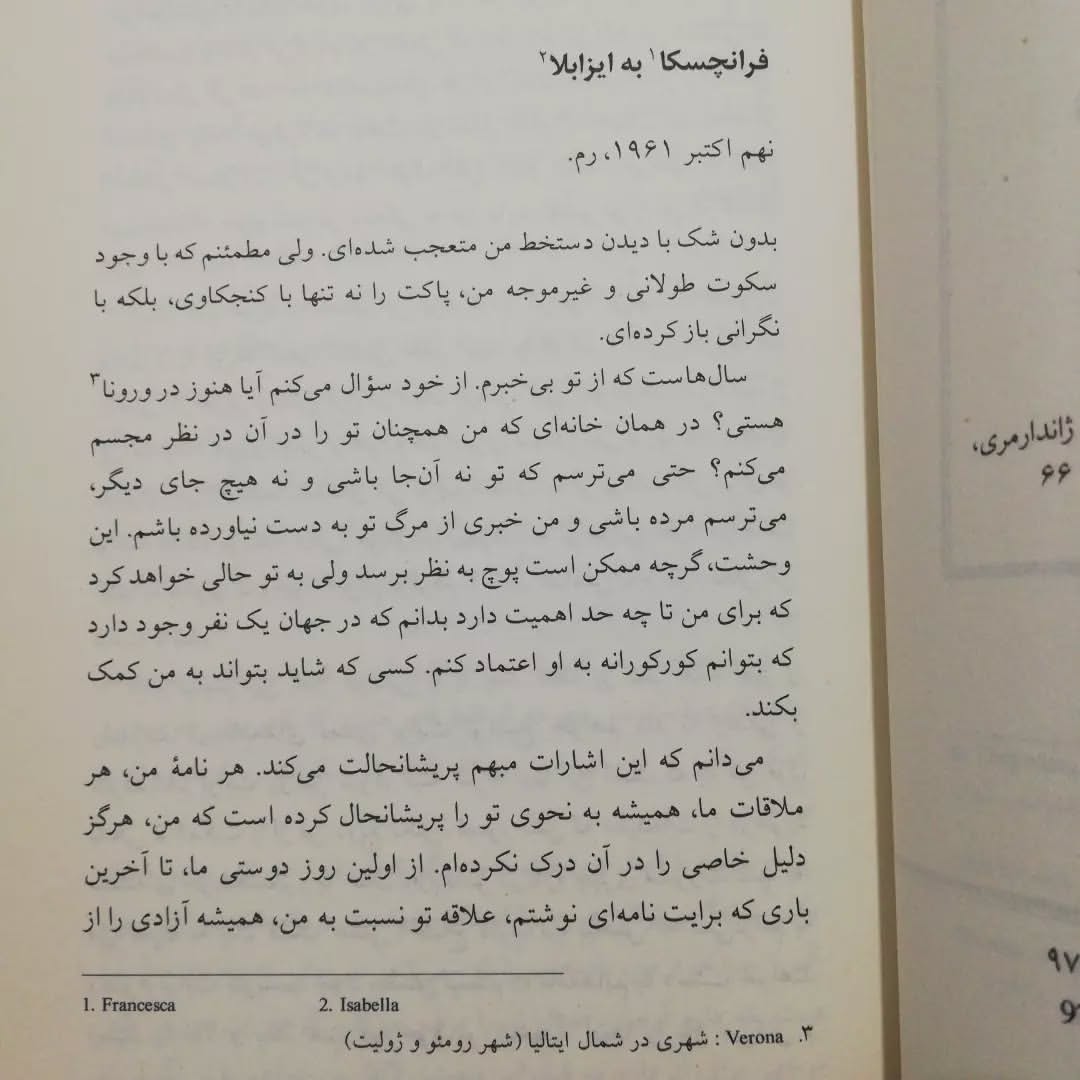 فرانچسکا۱ به ایزابلا۲
نهم اکتبر ۱۹۶۱، رم.
بدون شک با دیدن دستخط من متعجب شده‌ای. ولی مطمئنم که با وجود
سکوت طولانی و غیرموجه من، پاکت را نه تنها با کنجکاوی، بلکه با
نگرانی باز کرده‌ای.
سال‌هاست که از تو بی‌خبرم. از خود سؤال می‌کنم آیا هنوز در ورونا۳
هستی؟ در همان خانه‌ای که من همچنان تو را در آن در نظر مجسم
می‌کنم؟ حتی می‌ترسم که تو نه آن‌جا باشی و نه هیچ جای دیگر،
می‌ترسم مرده باشی و من خبری از مرگ تو به دست نیاورده باشم. این
وحشت، گرچه ممکن است پوچ به نظر برسد ولی به تو حالی خواهد کرد
که برای من تا چه حد اهمیت دارد بدانم که در جهان یک نفر وجود دارد
که بتوانم کورکورانه به او اعتماد کنم. کسی که شاید بتواند به من کمک
بکند.
می‌دانم که این اشارات مبهم پریشانحالت می‌کند. هر نامهٔ من، هر
ملاقات ما، همیشه به نحوی تو را پریشانحال کرده است که من، هرگز
دلیل خاصی را در آن درک نکرده‌ام. از اولین روز دوستی ما، تا آخرین
باری که برایت نامه‌ای نوشتم، علاقه تو نسبت به من، همیشه آزادی را از
1. Francesca 2. Isabella
۳. Verona : شهری در شمال ایتالیا (شهر رومئو و ژولیت)
ژاندارمری،
۶۶
۹۷